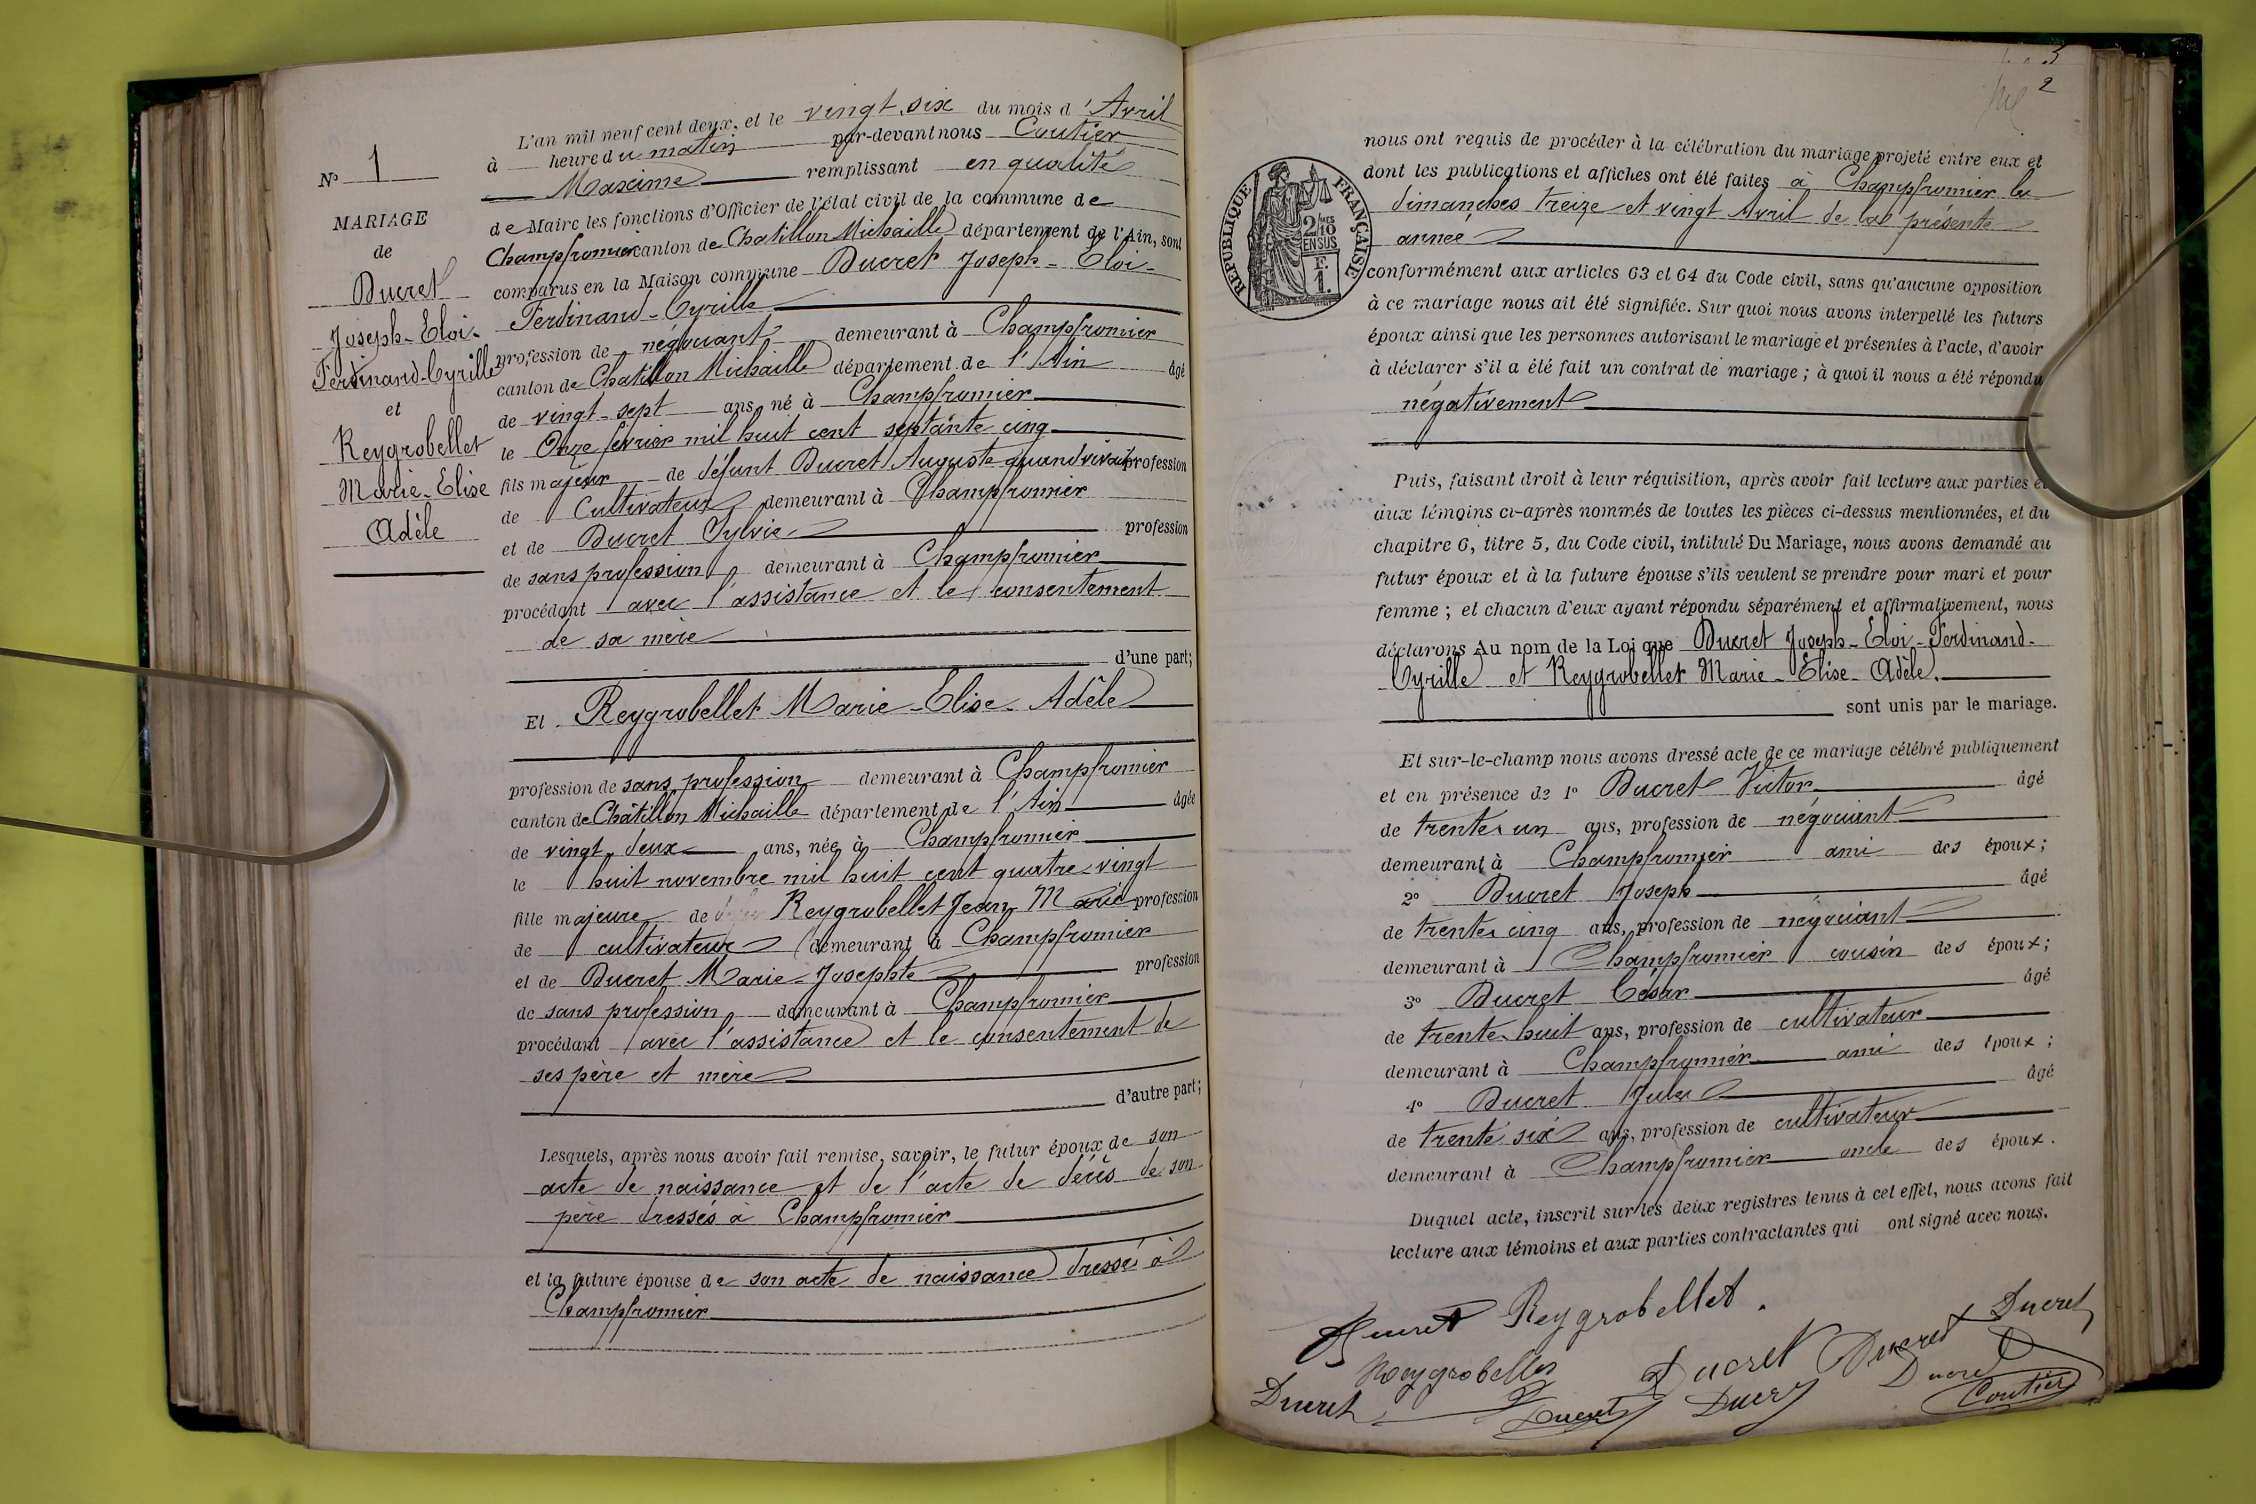 N° 1
MARIAGE
de
Ducret
Joseph-Eloi-
Ferdinand-Cyrille
et
Reygrobellet
Marie-Elise
Adèle
L'an mil neuf cent deux, et le vingt-six du mois d'Avril
à heure du matin par-devant nous Coutier
Maxime remplissant en qualité
de Maire les fonctions d'Officier de l'état civil de la commune de
Champfromier canton de Chatillon Michaille département de l'Ain, sont
comparus en la Maison commune Ducret Joseph-Eloi-
Ferdinand-Cyrille
profession de négociant demeurant à Champfromier
canton de Chatillon Michaille département de l'Ain âgé
de vingt-sept ans, né à Champfromier
le Onze février mil huit cent septante cinq
fils majeur de défunt Ducret Auguste quand vivait profession
de Cultivateur demeurant à Champfromier
et de Ducret Sylvie profession
de sans profession demeurant à Champfromier
procédant avec l'assistance et le consentement
de sa mère
d'une part;
Et Reygrobellet Marie-Elise-Adèle
profession de sans profession demeurant à Champfromier
canton de Châtillon Michaille département de l'Ain âgée
de vingt-deux ans, née à Champfromier
le huit novembre mil huit cent quatre-vingt
fille majeure de Reygrobellet Jean Marie profession
de cultivateur demeurant à Champfromier
et de Ducret Marie-Josephte profession
de sans profession demeurant à Champfromier
procédant avec l'assistance et le consentement de
ses père et mère
d'autre part;
Lesquels, après nous avoir fait remise, savoir, le futur époux de son
acte de naissance et de l'acte de décès de son
père dressés à Champfromier
et la future épouse de son acte de naissance dressé à
Champfromier
2
nous ont requis de procéder à la célébration du mariage projeté entre eux et
dont les publications et affiches ont été faites à Champfromier les
dimanches treize et vingt Avril de la présente
année
RÉPUBLIQUE FRANÇAISE
2/10
EN SUS
F.
1.
conformément aux articles 63 et 64 du Code civil, sans qu'aucune opposition
à ce mariage nous ait été signifiée. Sur quoi nous avons interpellé les futurs
époux ainsi que les personnes autorisant le mariage et présentes à l'acte, d'avoir
à déclarer s'il a été fait un contrat de mariage ; à quoi il nous a été répondu
négativement
Puis, faisant droit à leur réquisition, après avoir fait lecture aux parties et
aux témoins ci-après nommés de toutes les pièces ci-dessus mentionnées, et du
chapitre 6, titre 5, du Code civil, intitulé Du Mariage, nous avons demandé au
futur époux et à la future épouse s'ils veulent se prendre pour mari et pour
femme ; et chacun d'eux ayant répondu séparément et affirmativement, nous
déclarons Au nom de la Loi que Ducret Joseph-Eloi-Ferdinand-
Cyrille et Reygrobellet Marie-Elise-Adèle.
sont unis par le mariage.
Et sur-le-champ nous avons dressé acte de ce mariage célébré publiquement
et en présence de 1° Ducret Victor âgé
de trente-un ans, profession de négociant
demeurant à Champfromier ami des époux;
2° Ducret Joseph âgé
de trente-cinq ans, profession de négociant
demeurant à Champfromier cousin des époux;
3° Ducret César âgé
de trente-huit ans, profession de cultivateur
demeurant à Champfromier ami des époux;
4° Ducret Jules âgé
de trente six ans, profession de cultivateur
demeurant à Champfromier oncle des époux.
Duquel acte, inscrit sur les deux registres tenus à cet effet, nous avons fait
lecture aux témoins et aux parties contractantes qui ont signé avec nous.
Ducret Reygrobellet.
Reygrobellet Ducret Ducret Ducret
Ducret Ducret Ducret Ducret Coutier